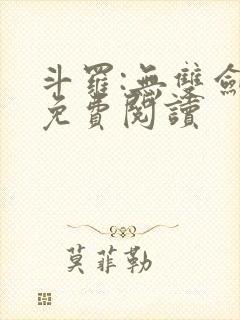 斗羅:無雙劍
免費閱讀
莫菲勒